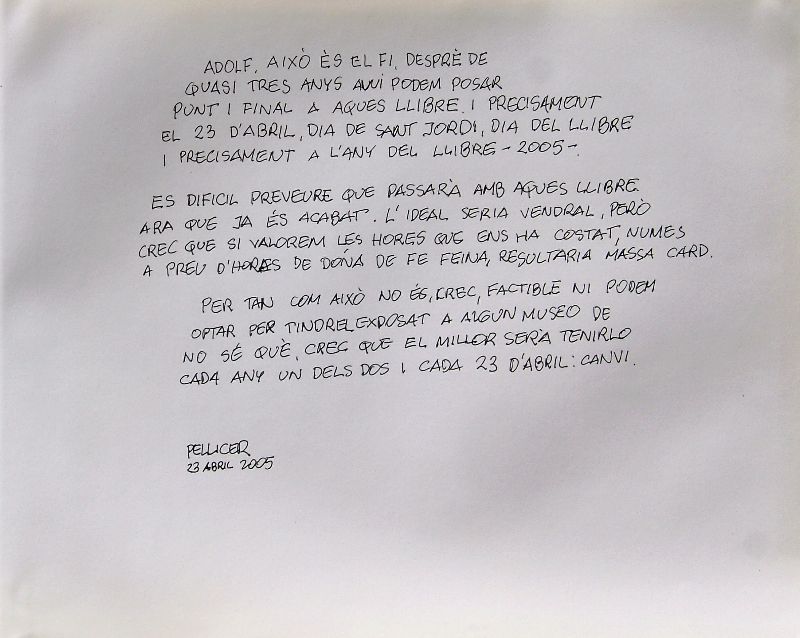 ADOLF, AIXÒ ÈS EL FI, DESPRÈ DE
QUASI TRES ANYS AVUI PODEM POSAR
PUNT I FINAL A AQUES LLIBRE. I PRECISAMENT
EL 23 D'ABRIL, DIA DE SANT JORDI, DIA DEL LLIBRE
I PRECISAMENT A L'ANY DEL LLIBRE - 2005 -.
ES DIFICIL PREVEURE QUE PASSARÀ AMB AQUES LLIBRE
ARA QUE JA ÉS ACABAT. L'IDEAL SERIA VENDRAL, PERÒ
CREC QUE SI VALOREM LES HORES QUE ENS HA COSTAT, NUMES
A PREU D'HORAS DE DOÑA DE FE FEINA, RESULTARIA MASSA CARD.
PER TAN COM AIXÒ NO ÉS, CREC, FACTIBLE NI PODEM
OPTAR PER TINDREL EXPOSAT A ALGUN MUSEO DE
NO SÉ QUÈ, CREC QUE EL MILLOR SERÀ TENIRLO
CADA ANY UN DELS DOS I CADA 23 D'ABRIL: CANVI.
PELLICER
23 ABRIL 2005